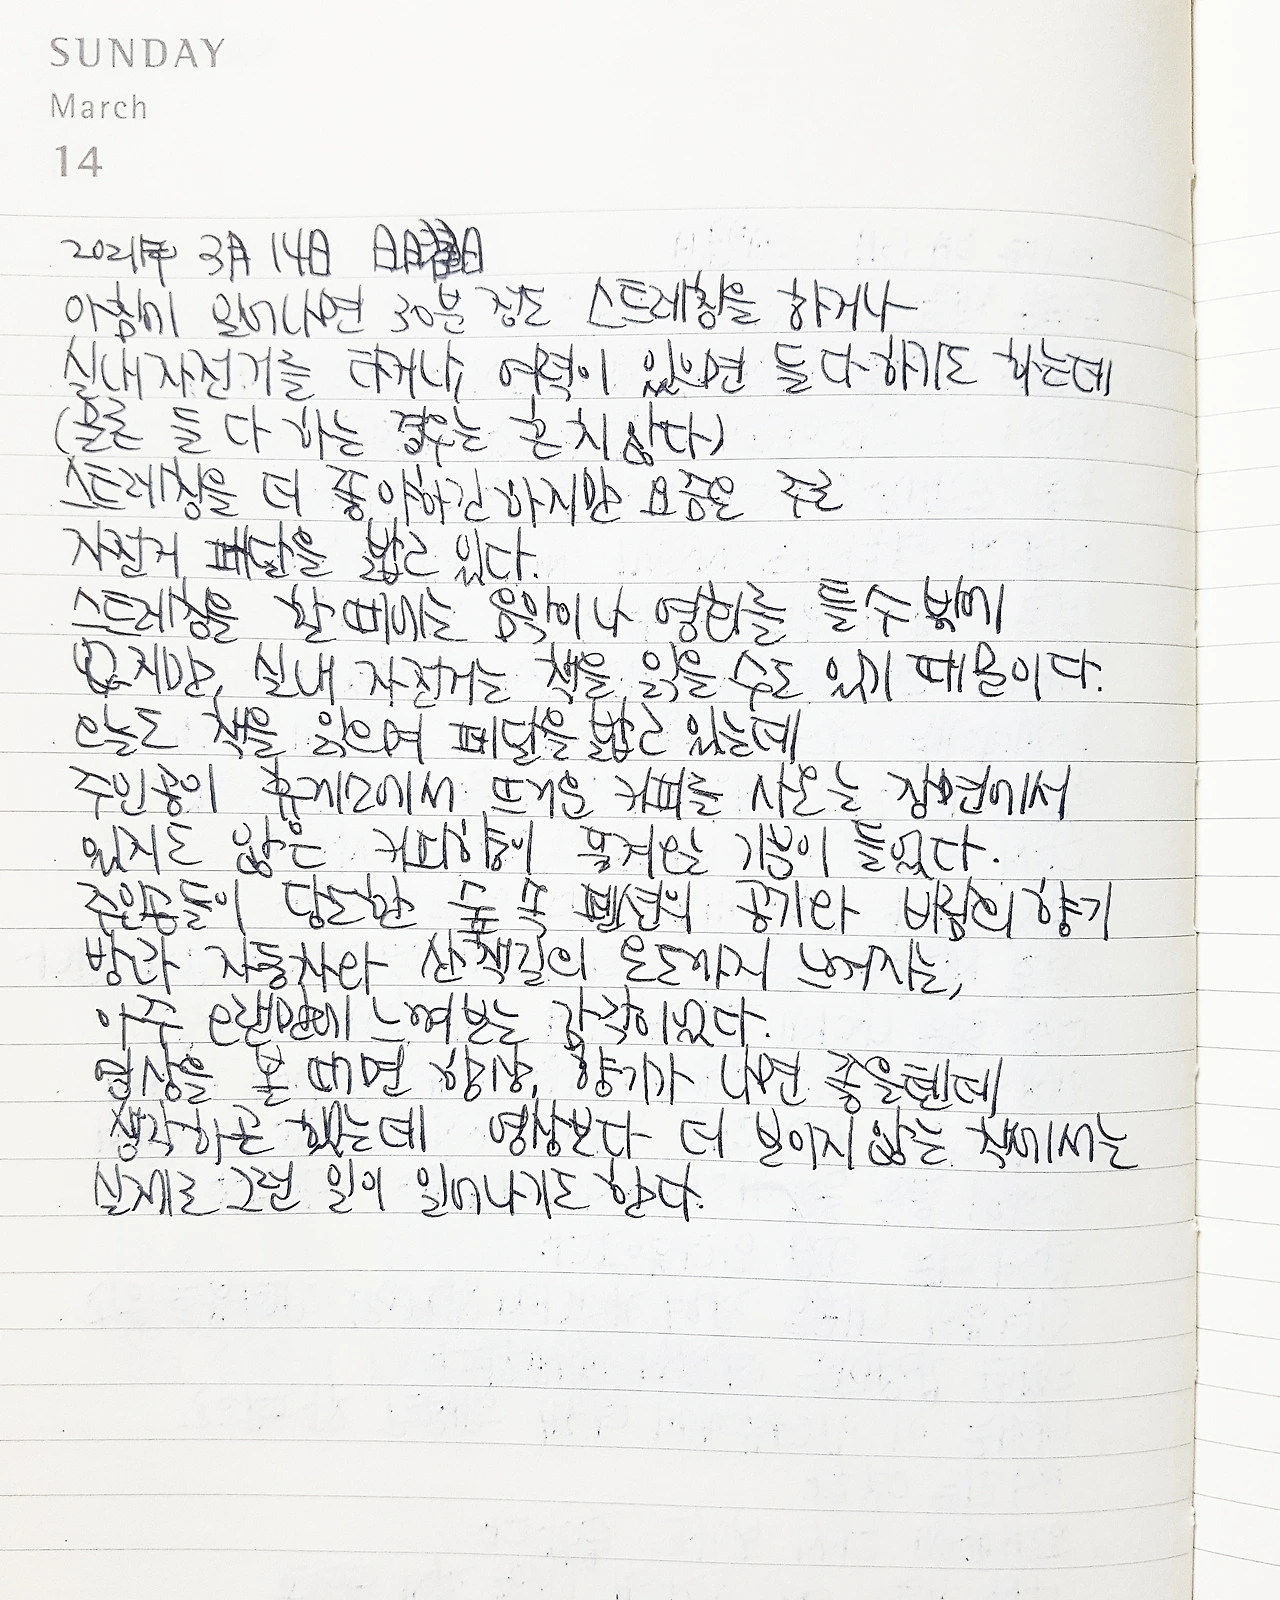 SUNDAY
March
14
2021年 3月 14日 日曜日
아침에 일어나면 30분 정도 스트레칭을 하거나
실내자전거를 타거나, 여력이 있으면 둘 다 하기도 하는데
(물론 둘 다 하는 경우는 흔치 않다)
스트레칭을 더 좋아하긴 하지만 요즘은 주로
자전거 페달을 밟고 있다.
스트레칭을 할 때에는 음악이나 영화를 틀 수 밖에
없지만, 실내 자전거는 책을 읽을 수도 있기 때문이다.
오늘도 책을 읽으며 페달을 밟고 있는데
주인공이 휴게소에서 뜨거운 커피를 사오는 장면에서
있지도 않은 커피향이 풍겨오는 기분이 들었다.
주인공들이 당도한 숲 속 펜션의 공기와 바람의 향기
방과 자동차와 산책길의 온도까지 느껴지는,
아주 오랜만에 느껴보는 감각이었다.
영상을 볼 때면 항상, 향기가 나면 좋을텐데
생각하곤 했는데 영상보다 더 보이지 않는 책에서는
실제로 그런 일이 일어나기도 한다.